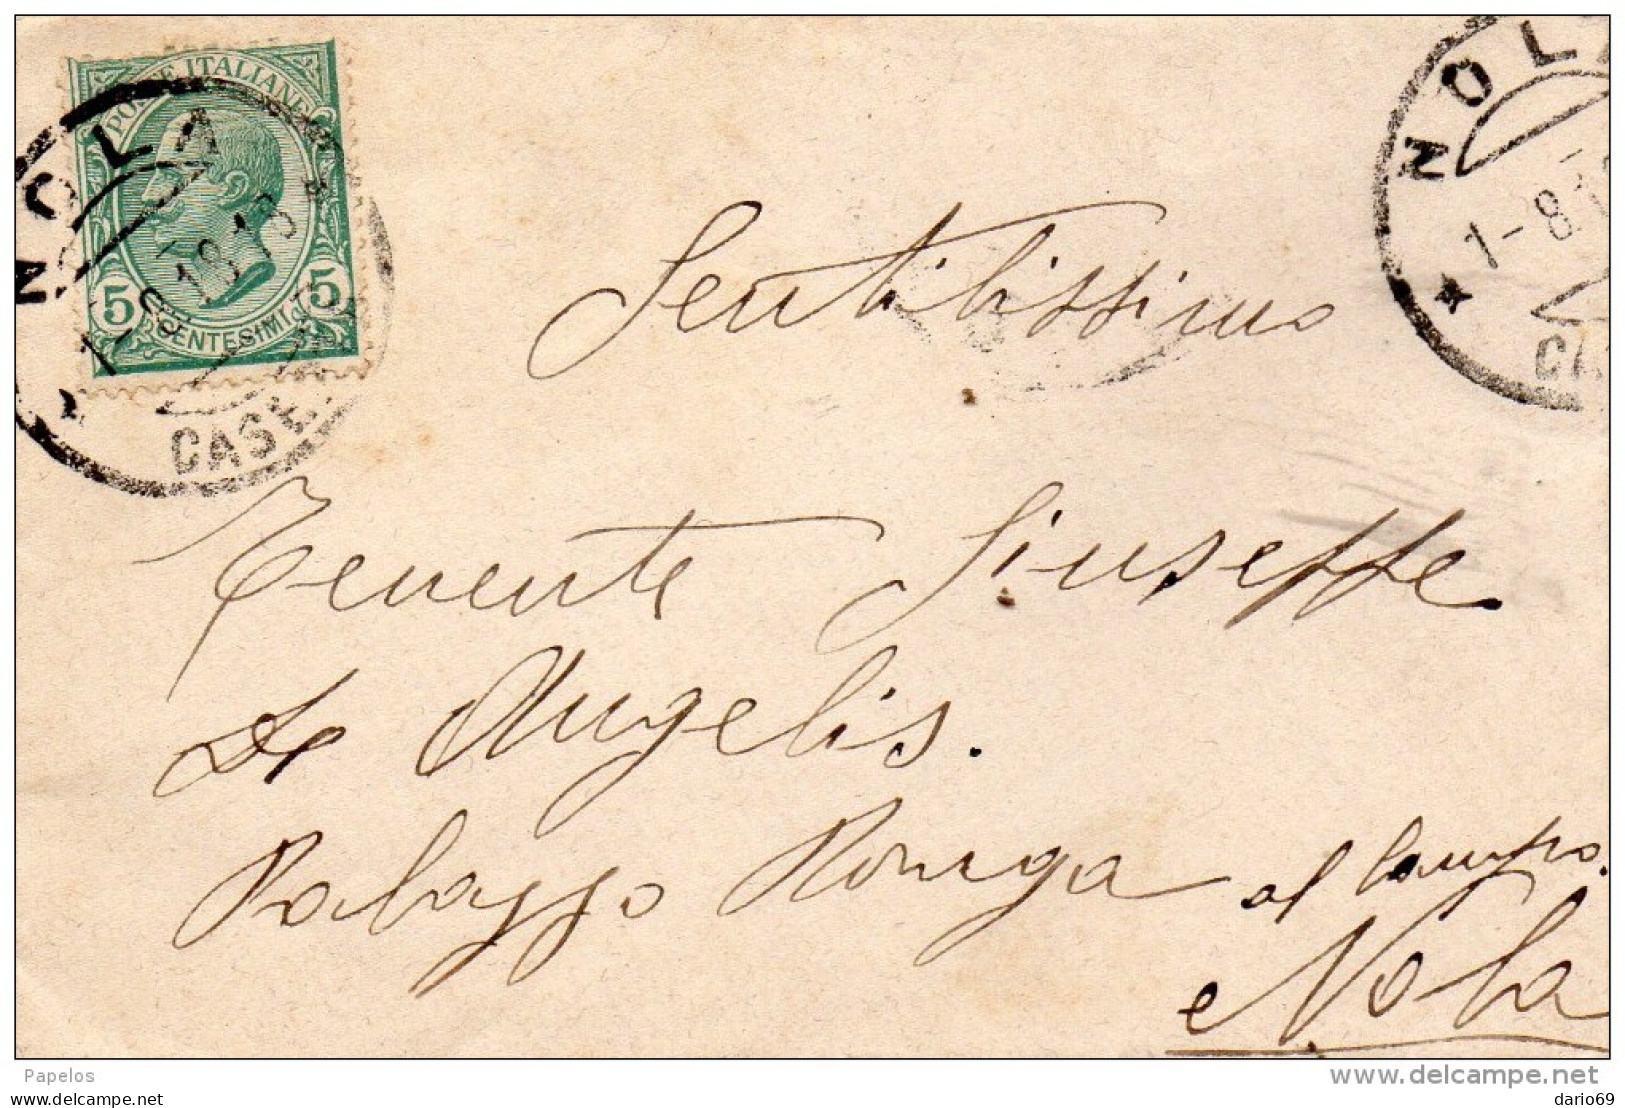 POSTE ITALIANE
NOLA
1-8
18
5 CENTESIMI 5
CASE
NOLA
1-8
CA
Gentilissimo
Tenente Giuseppe
De Angelis.
Palazzo Ronga al Campo.
Nola
Papelos
www.delcampe.net
dario69